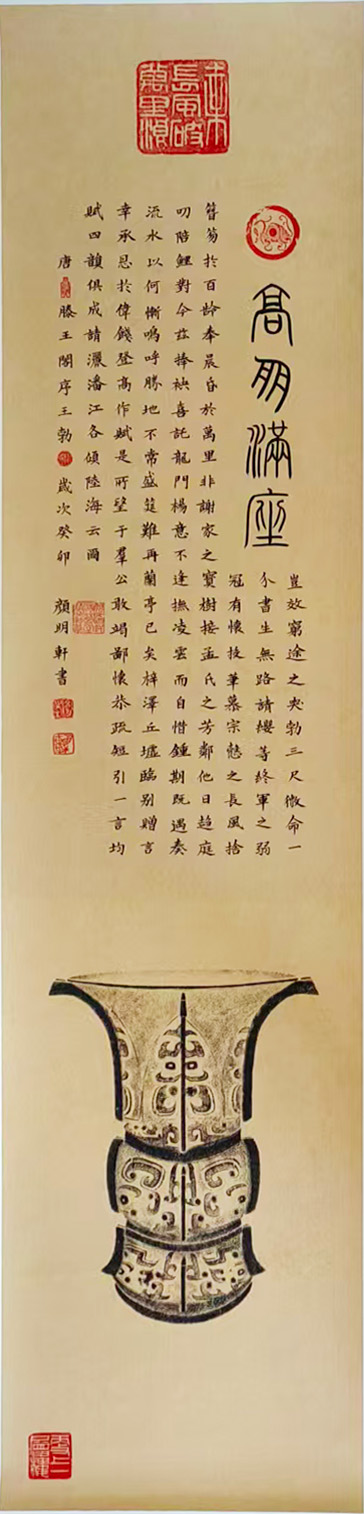 乘長風破萬里浪
高朋滿座
豈效窮途之哭勃三尺微命一
介書生無路請纓等終軍之弱
冠有懷投筆慕宗愨之長風捨
簪笏於百齡奉晨昏於萬里非謝家之寶樹接孟氏之芳鄰他日趨庭
叨陪鯉對今茲捧袂喜託龍門楊意不逢撫凌雲而自惜鍾期既遇奏
流水以何慚嗚呼勝地不常盛筵難再蘭亭已矣梓澤丘墟臨别贈言
幸承恩於偉餞登高作賦是所望于羣公敢竭鄙懷恭疏短引一言均
賦四韻俱成請灑潘江各傾陸海云爾
唐滕王閣序王勃歲次癸卯顏明軒書